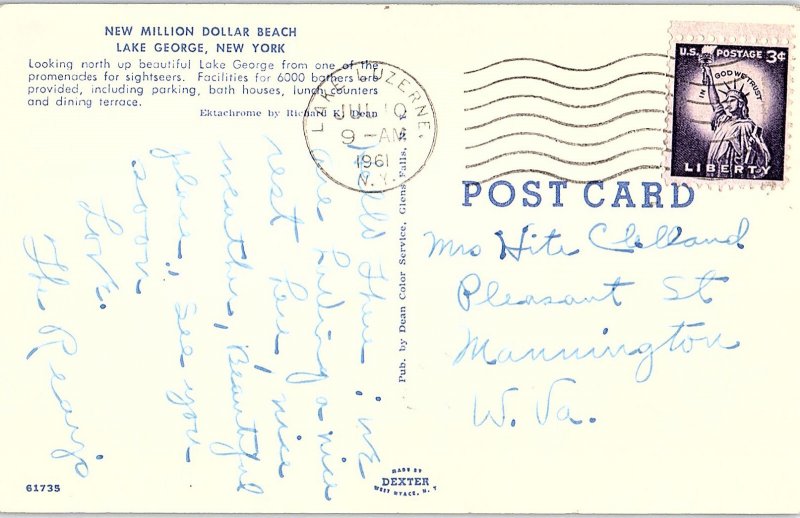 NEW MILLION DOLLAR BEACH
LAKE GEORGE, NEW YORK
Looking north up beautiful Lake George from one of the
promenades for sightseers. Facilities for 6000 bathers are
provided, including parking, bath houses, lunch counters
and dining terrace.
Ektachrome by Richard K. Dean
LAKE LUZERNE,
JUL 10
9-AM
1961
N.Y.
U.S. POSTAGE 3¢
IN GOD WE TRUST
LIBERTY
POST CARD
Mrs Hite Clelland
Pleasant St
Mannington
W. Va.
There: we
are having a nice
rest here, nice
weather, Beautiful
place, see you
soon.
Love.
The
Pub. by Dean Color Service, Glens Falls, N.Y.
MADE BY
DEXTER
WEST NYACK, N.Y.
61735